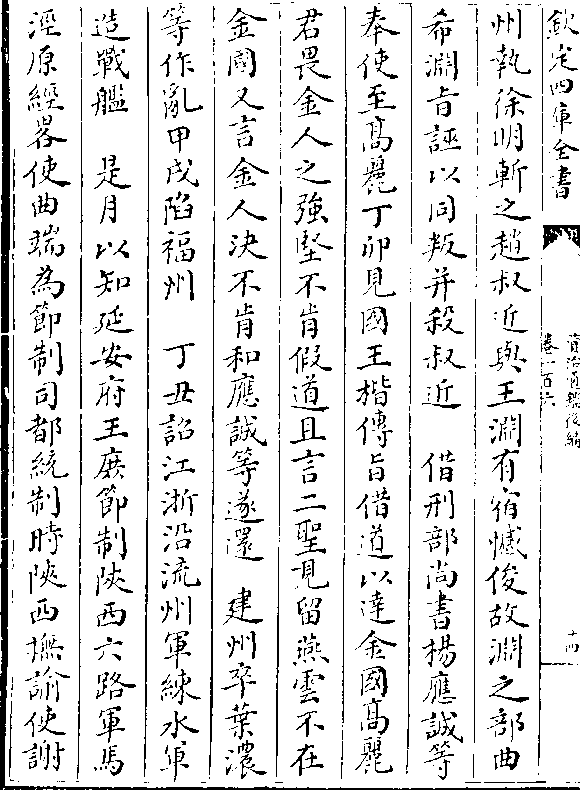 欽定四庫全書
資治通鑑後編
卷一百六
十四
州執徐明斬之趙叔近與王淵有宿憾俊故淵之部曲
希淵旨誣以同叛并殺叔近　借刑部尚書楊應誠等
奉使至髙麗丁卯見國王楷傳旨借道以達金國髙麗
君畏金人之強堅不肯假道且言二聖見留燕雲不在
金國又言金人決不肯和應誠等遂還　建州卒葉濃
等作亂甲戌陷福州　丁丑詔江浙沿流州軍練水軍
造戰艦　是月以知延安府王庶節制陜西六路軍馬
涇原經畧使曲端為節制司都統制時陜西撫諭使謝